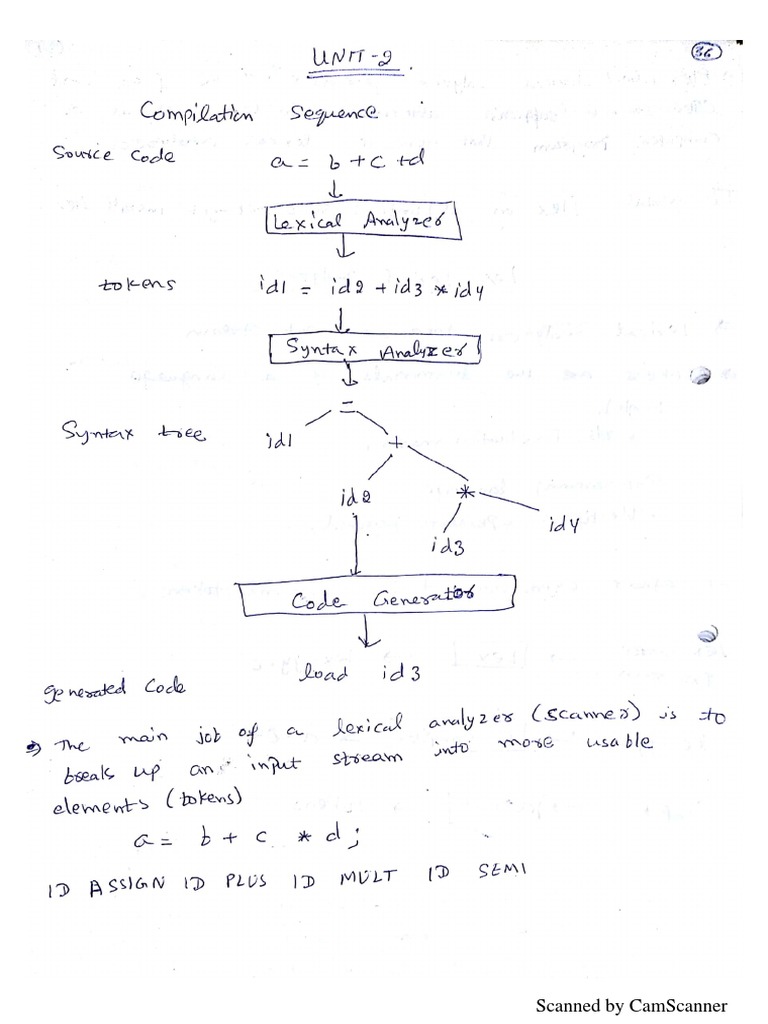 36
UNIT-2.
Compilation Sequence
Source Code a = b + c + d
Lexical Analyzer
tokens id1 = id2 + id3 * id4
Syntax Analyzer
=
Syntax tree id1 +
id2 *
id4
id3
Code Generator
generated Code load id3
→ The main job of a lexical analyzer (scanner) is to
break up an input stream into more usable
elements (tokens)
a = b + c * d ;
ID ASSIGN ID PLUS ID MULT ID SEMI
Scanned by CamScanner